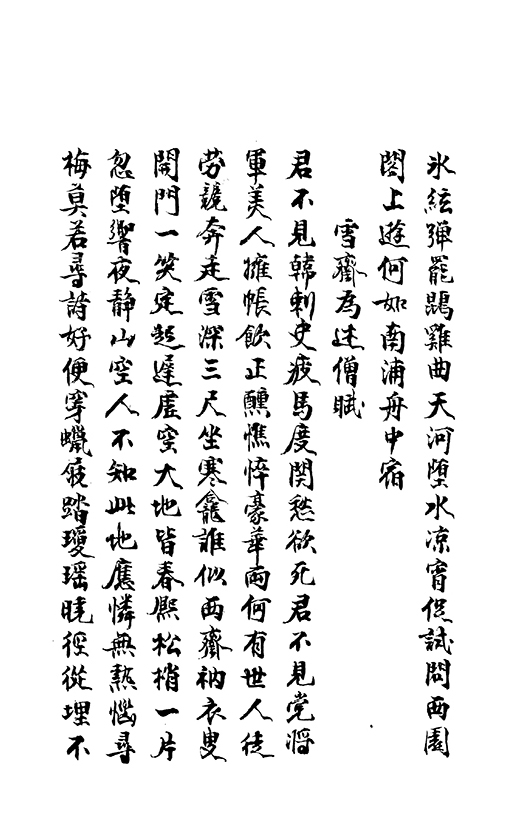 氷絃彈罷鵾雞曲天河墮水凉宵促試問西園
閣上遊何如南浦舟中宿
雪齋爲述僧賦
君不見韓刺史疲馬度関愁欲死君不見党將
軍美人擁帳飲正醺憔悴豪華兩何有世人徒
劳競奔走雪深三尺坐寒龕誰似西齋衲衣叟
開門一笑定起遲虛空大地皆春熈松梢一片
忽墮響夜静山空人不知此地應憐無熱惱尋
梅莫若尋詩好便穿蠟屐踏瓊瑶曉徑從埋不